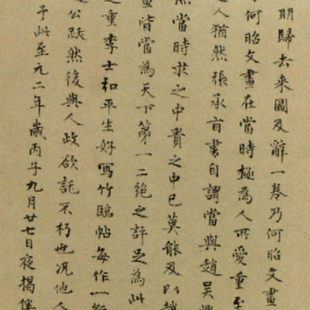 明歸去來圖及辭一卷乃何昭文畫
何昭文畫在當時極為人所愛重至
人猶然張承旨書自謂當與趙吳興
然當時求之中貴之中已莫能及以趙
畫皆當為天下第一二絕之評之為此
之重李士和平生好寫竹臨帖每作一
公跋然後與人政欲託不朽也況他人
于此至元二年歲丙子九月廿七日夜揭傒